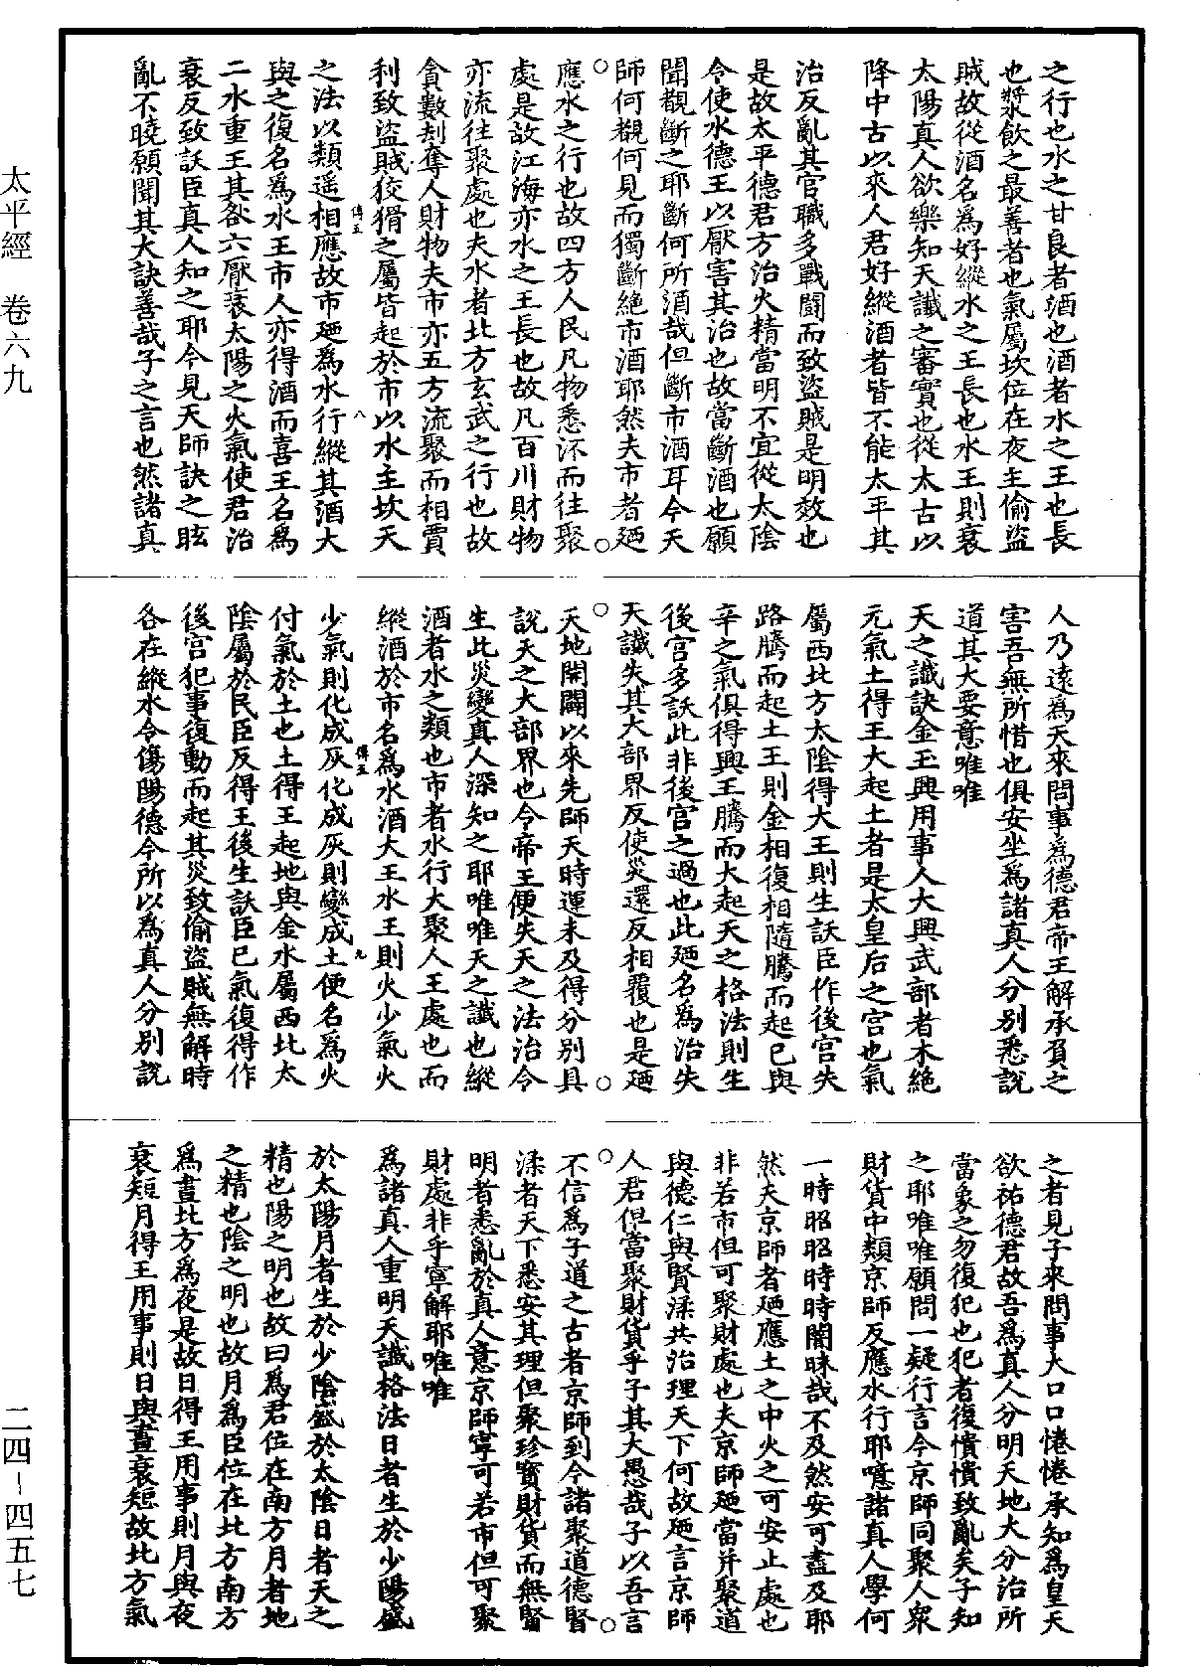 太平經 卷六九
二四-四五七
之行也水之甘良者酒也酒者水之王也長
也漿飲之最善者也氣屬坎位在夜主偷盜
賊故從酒名為好縱水之王長也水王則衰
太陽真人欲樂知天讖之審實也從太古以
降中古以來人君好縱酒者皆不能太平其
治反亂其官職多戰鬬而致盜賊是明效也
是故太平德君方治火精當明不宜從太陰
令使水德王以厭害其治也故當斷酒也願
聞觀斷之耶斷何所酒哉但斷市酒耳今天
師何覩何見而獨斷絕市酒耶然夫市者廼
應水之行也故四方人民凡物悉泝而往聚
處是故江海亦水之王長也故凡百川財物
亦流往聚處也夫水者北方玄武之行也故
貪數刦奪人財物夫市亦五方流聚而相賈
利致盜賊狡猾之屬皆起於市以水主坎天
傅五
八
之法以類遥相應故市廼為水行縱其酒大
與之復名為水王市人亦得酒而喜王名為
二水重王其咎六厭衰太陽之火氣使君治
衰反致訞臣真人知之耶今見天師訣之眩
亂不曉願聞其大訣善哉子之言也然諸真
人乃遠為天來問事為德君帝王解承負之
害吾無所惜也俱安坐為諸真人分别悉說
道其大要意唯唯
天之讖訣金王興用事人大興武部者木絕
元氣土得王大起土者是太皇后之宫也氣
屬西北方太陰得大王則生訞臣作後宫失
路騰而起土王則金相復相隨騰而起已與
辛之氣俱得興王騰而大起天之格法則生
後宫多訞此非後宫之過也此廼名為治失
天讖失其大部界反使災還反相覆也是廼
天地開闢以來先師天時運未及得分别具
說天之大部界也今帝王便失天之法治令
生此災變真人深知之耶唯唯天之讖也縱
酒者水之類也市者水行大聚人王處也而
縱酒於市名為水酒大王水王則火少氣火
傅五
九
少氣則化成灰化成灰則變成土便名為火
付氣於土也土得王起地與金水屬西北太
陰屬於民臣反得王後生訞臣巳氣復得作
後宫犯事復動而起其災致偷盜賊無解時
各在縱水令傷陽德令所以為真人分别說
之者見子來問事大口口惓惓承知為皇天
欲祐德君故吾為真人分明天地大分治所
當象之勿復犯也犯者復憒憒致亂矣子知
之耶唯唯願問一疑行言今京師同聚人衆
財貨中類京師反應水行耶噫諸真人學何
一時昭昭時時闇昧哉不及然安可盡及耶
然天京師者廼應土之中火之可安止處也
非若市但可聚財處也夫京師廼當并聚道
與德仁與賢渘共治理天下何故廼言京師
人君但當聚財貨乎子其大愚哉子以吾言
不信為子道之古者京師到今諸聚道德賢
渘者天下悉安其理但聚珍寳財貨而無賢
明者悉亂於真人意京師寧可若市但可聚
財處非乎寧解耶唯唯
為諸真人重明天讖格法日者生於少陽盛
於太陽月者生於少陰盛於太陰日者天之
精也陽之明也故曰為君位在南方月者地
之精也陰之明也故月為臣位在北方南方
為晝北方為夜是故日得王用事則月與夜
衰短月得王用事則日與晝衰短故北方氣